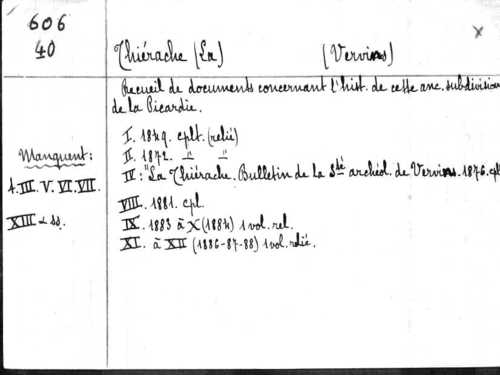 606
40
Thiérache (La) (Vervins)
Recueil de documents concernant l'hist. de cette anc. subdivision
de la Picardie.
I. 1849. cplt. (relié)
II. 1872. " "
IV: "La Thiérache. Bulletin de la Sté archéol. de Vervins. 1876. cpl
VIII. 1881. cpl.
IX. 1883 à X (1884) 1 vol. rel.
XI. à XII (1886-87-88) 1 vol. relié.
Manquent:
III. V. VI. VII.
XIII & ss.